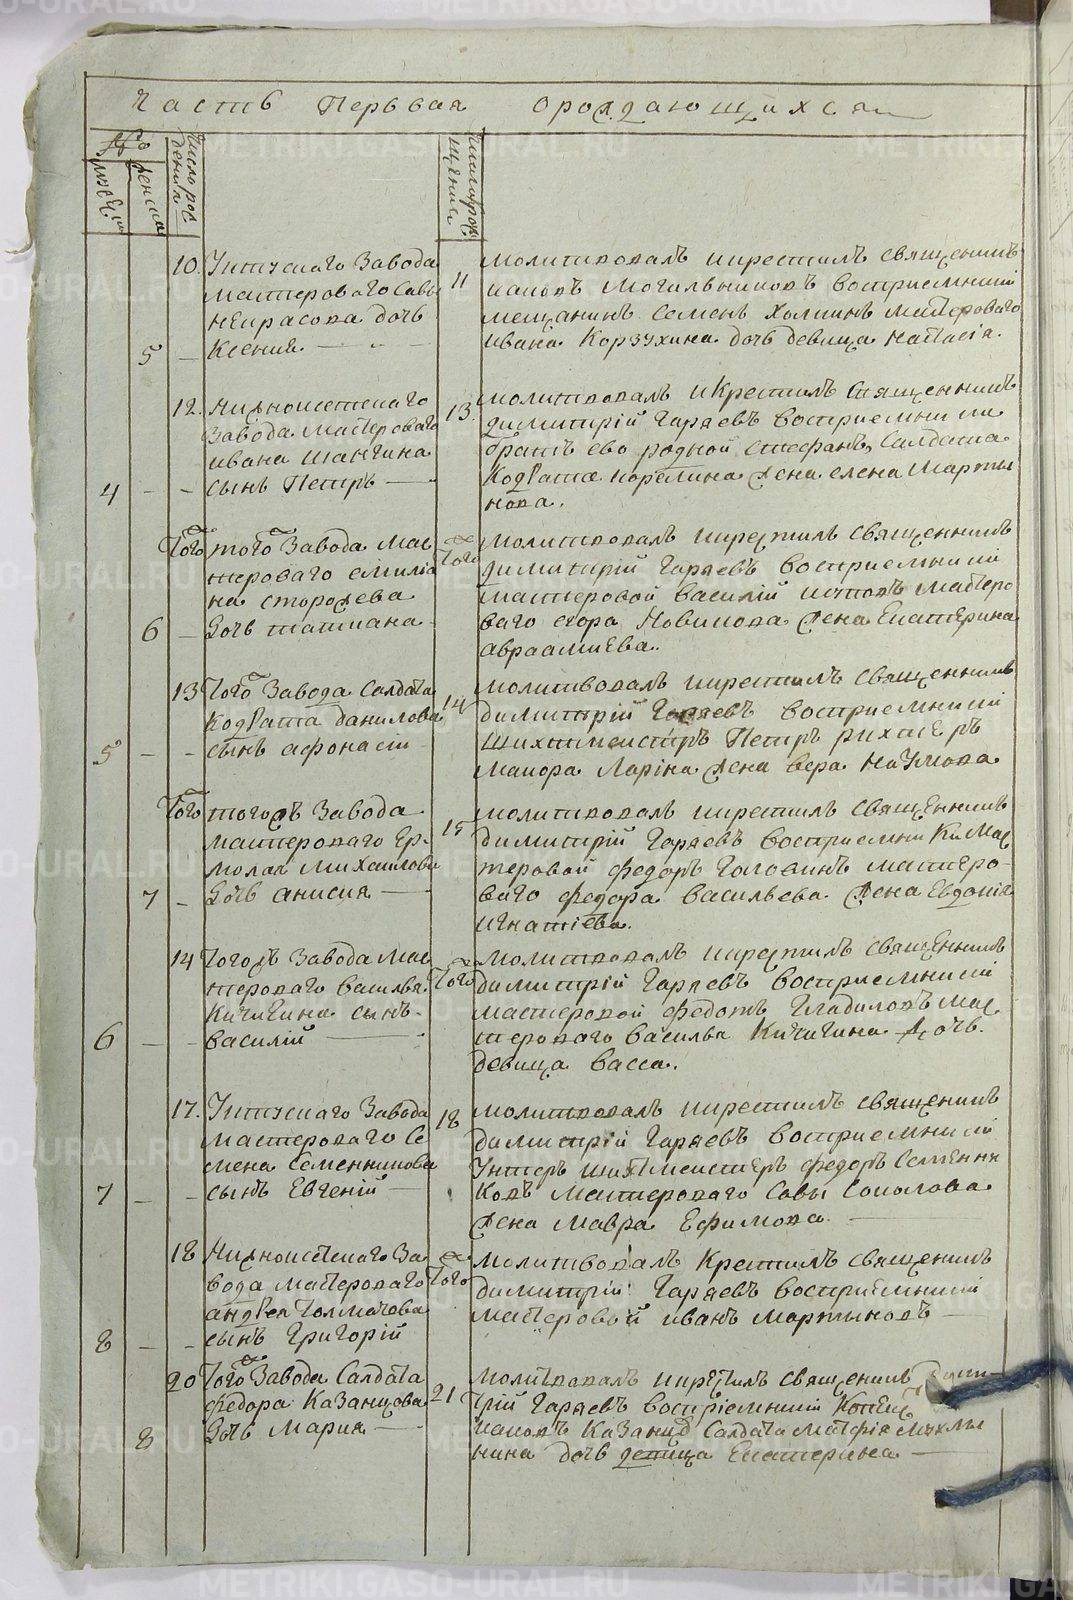 Часть Первая ораждающихся
№
мужеск
женска
число рождения
число крещения
10. Уктусскаго Завода
мастероваго Савы
Некрасова дочь
5 — Ксения —
11 молитвовалъ и крестилъ священникъ
иаковъ Могильниковъ восприемники
мещанинъ Семенъ Холкинъ мастероваго
ивана Корзухина дочь девица Настасiя.
12. Нижноисетскаго
Завода мастероваго
ивана Шангина
4 — — сынъ Петръ —
13 молитвовалъ и крестилъ священникъ
димитрiй Гаряевъ восприемники
братъ ево родной Стефанъ, Салдата
Кодрата корелина жена елена Марты
нова.
Того ж того ж Завода мас
тероваго емилiа
на сторожева
6 — дочь татиана
Того ж молитвовалъ и крестилъ священникъ
димитрiй Гаряевъ восприемники
мастеровой василiй мастеро
ваго егора Новикова жена Екатерина
авраамиева.
13 Того ж Завода Салдата
Кодрата данилова
5 — — сынъ афонасiи
14 молитвовалъ и крестилъ священникъ
димитрiй Гаряевъ восприемники
Шихтмеистръ Петръ рихтеръ
маиора Ларiна жена вера Наумова
Того ж тогожъ Завода
мастероваго Ер-
молая михаилова
7 — дочь анисия —
15 молитвовалъ и крестилъ священникъ
димитрiй Гаряевъ восприемники Мас
теровой федоръ Головинъ мастеро-
ваго федора васильева жена Евдокiя
игнатiева.
14 Тогожъ Завода мас
тероваго василья
Кичигина сынъ-
6 — — василiй —
Того ж молитвовалъ и крестилъ священникъ
димитрiй Гаряевъ восприемники
мастеровой федотъ Гладиловъ мас
тероваго василья Кичигина дочь
девица васса.
17. Уктусскаго Завода
мастероваго Се
мена Семенникова
7 — — сынъ Евгенiй —
18 молитвовалъ и крестилъ священникъ
димитрiй Гаряевъ восприемники
Унтеръ шихтмеистеръ федоръ Семенни
ковъ мастероваго Савы Соколова
жена мавра Ефимова. —
18 Нижноисетскаго За
вода мастероваго
андрея Толмачова
8 — — сынъ Григорiй
Того ж молитвовалъ Крестилъ священникъ
димитрiй Гаряевъ восприемники
мастеровый иванъ мартыновъ —
20 Того ж Завода Салдата
федора Казанцова
8 дочь Мария —
21 молитвовалъ и крестилъ священникъ Дими-
трiй Гаряевъ восприемники
Казанцовъ Салдата матфiя
нина дочь девица Екатерина —